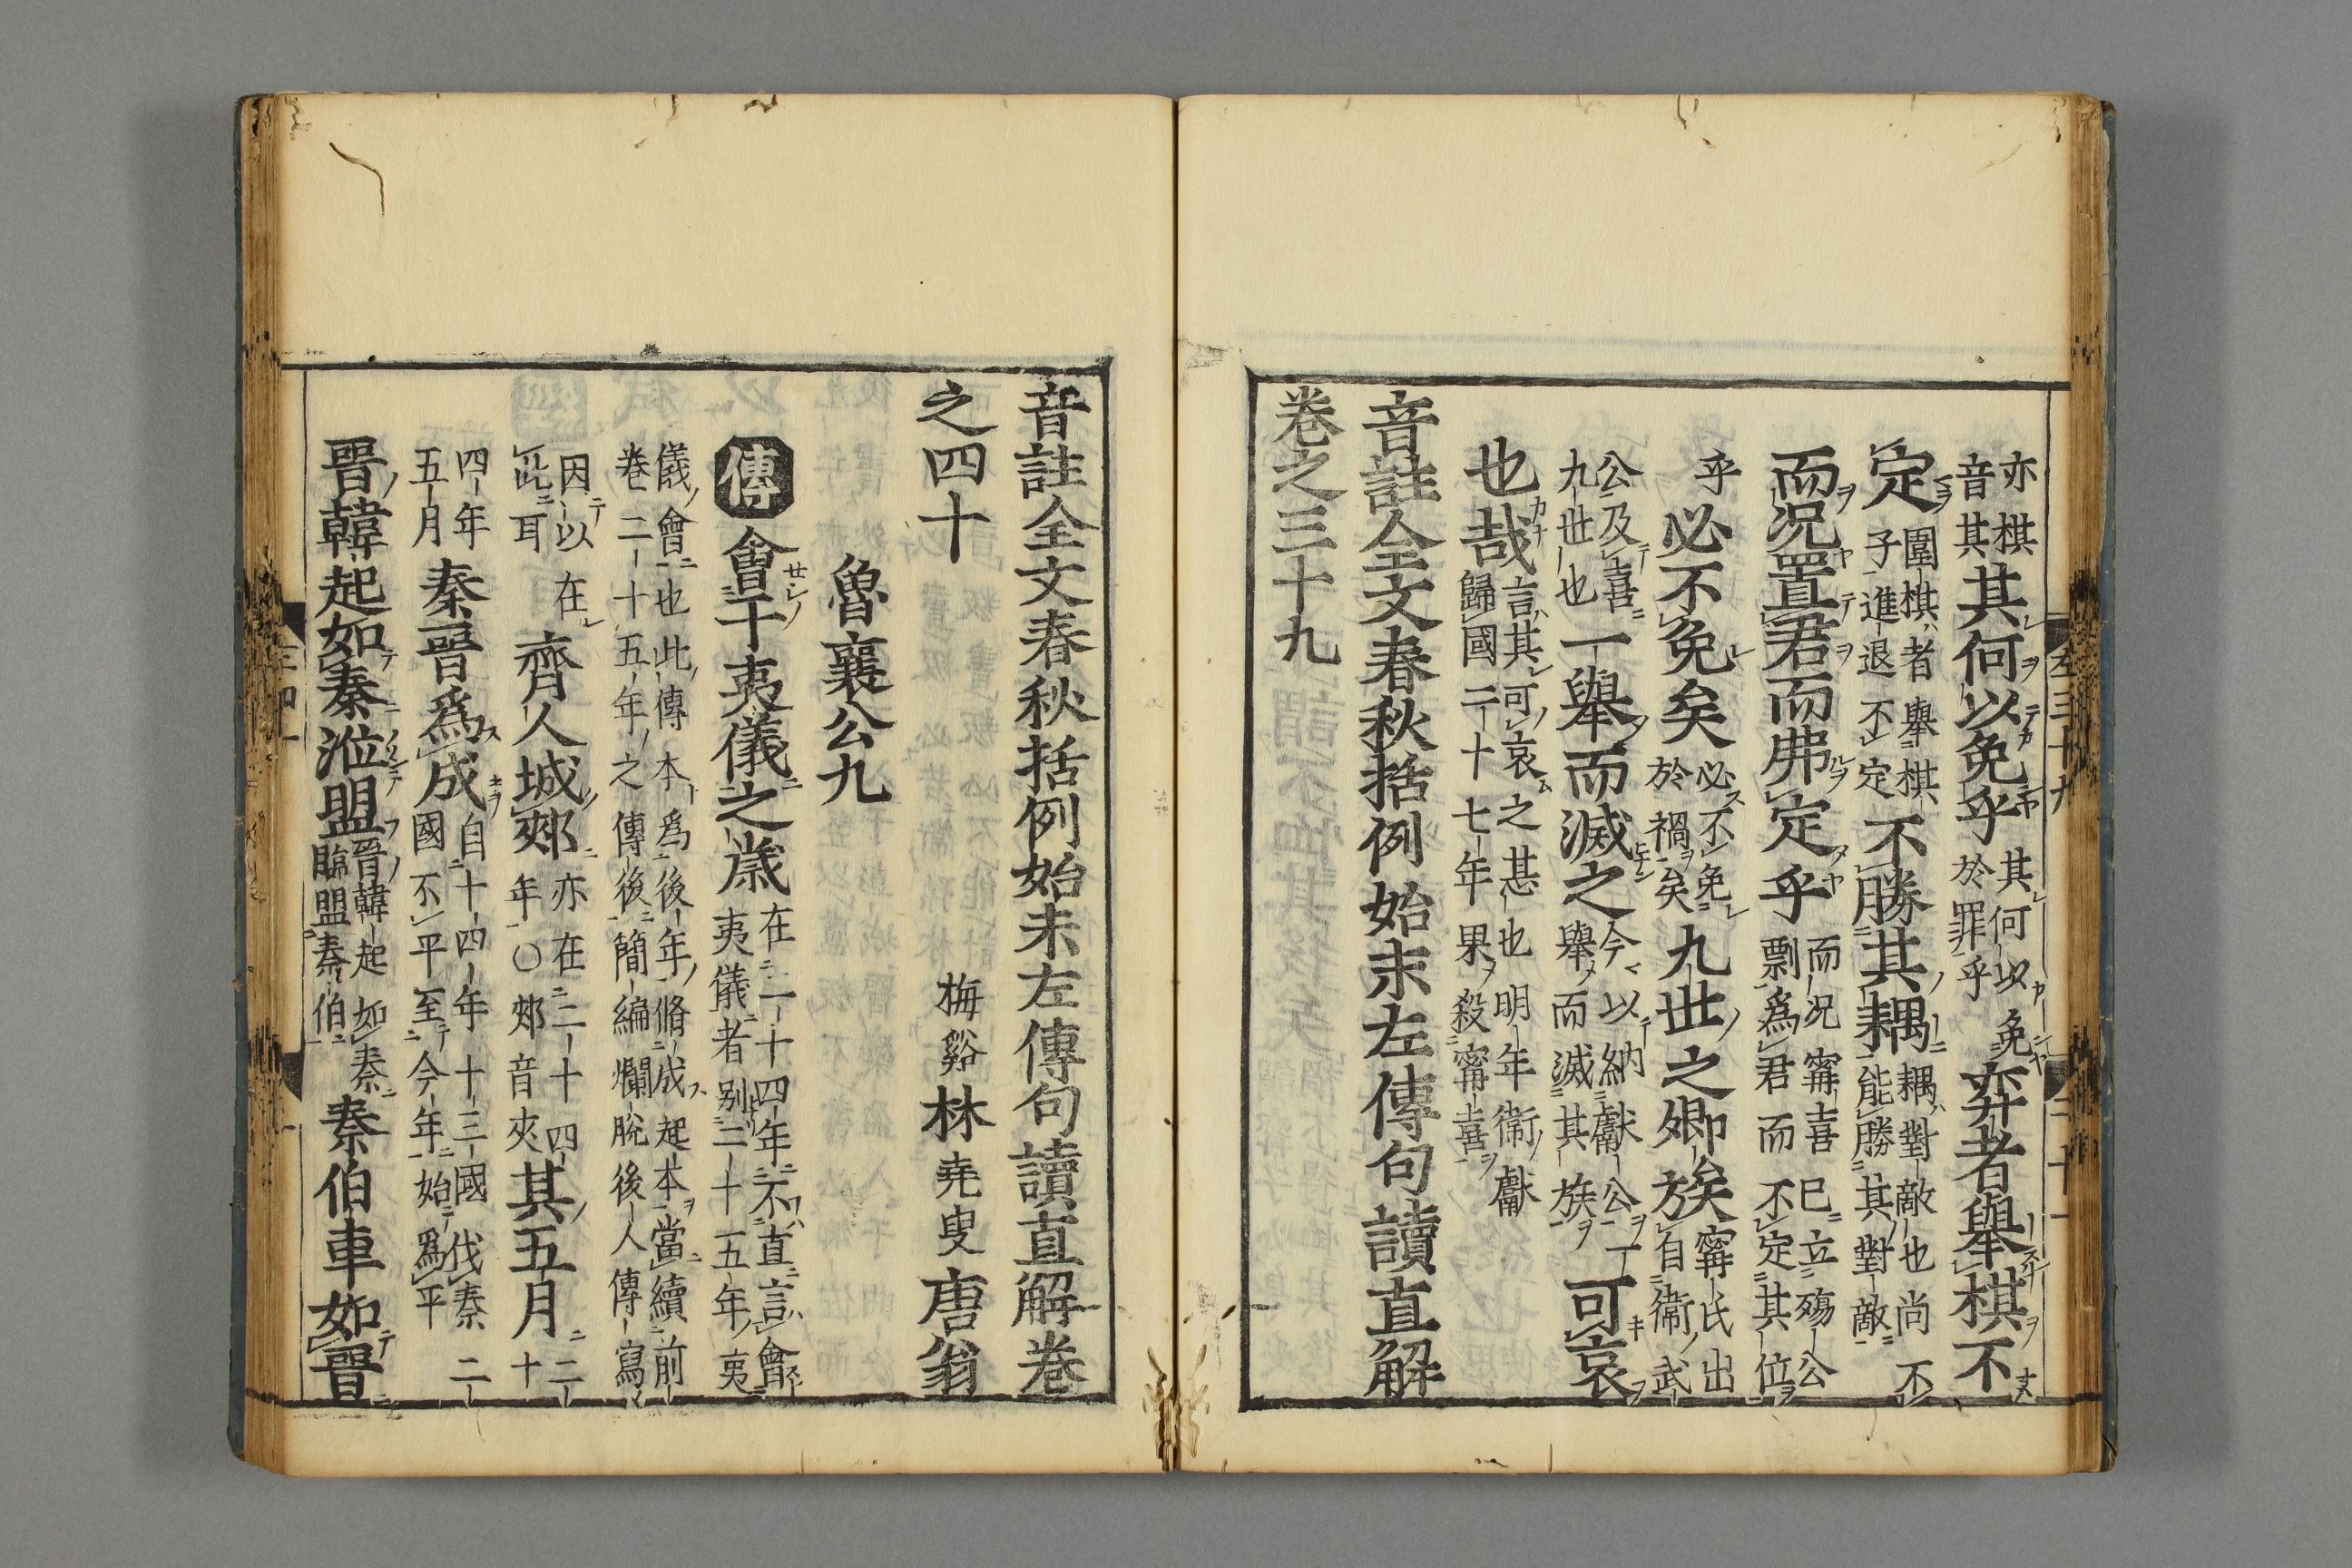 亦棋音其其何以免乎其何以免於罪乎弈者舉棋不
定圍棋者舉棋子進退不定不勝其耦耦對敵也尚不能勝其對敵
而況置君而弗定乎而況甯喜已立殤公剽爲君而不定其位
乎必不免矣必不免於禍矣九世之卿族甯氏出自衛武
公及喜九世也一舉而滅之今以納獻公一舉而滅其族可哀
也哉言其可哀之甚也明年衛獻歸國二十七年果殺甯喜
音註全文春秋括例始末左傳句讀直解
卷之三十九
音註全文春秋括例始末左傳句讀直解卷
之四十
梅谿林堯叟唐翁
魯襄公九
傳會于夷儀之歲在二十四年不直言會夷儀者别二十五年夷
儀會也此傳本爲後年脩成起本當續前卷二十五年之傳後簡編爛脫後人傳寫
因以在此耳齊人城郟亦在二十四年〇郟音夾其五月二十
四年五月秦晉爲成自十四年十三國伐秦二國不平至今年始爲平
晉韓起如秦涖盟晉韓起如秦臨盟秦伯秦伯車如晉